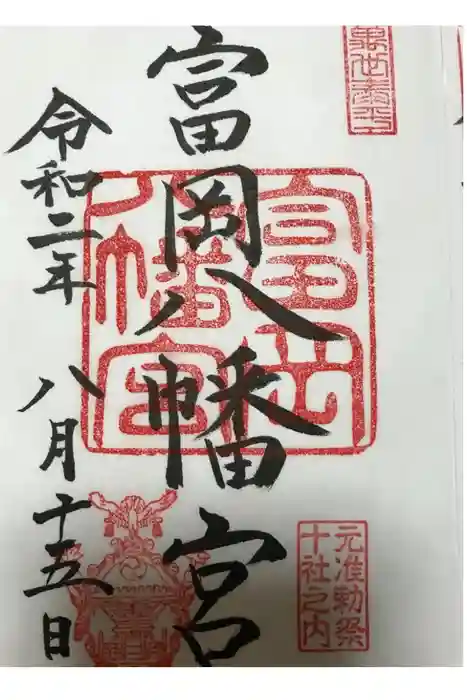 萬世泰平
富岡八幡宮
富岡
八幡宮
元准勅祭
十社之内
令和二年 八月十五日